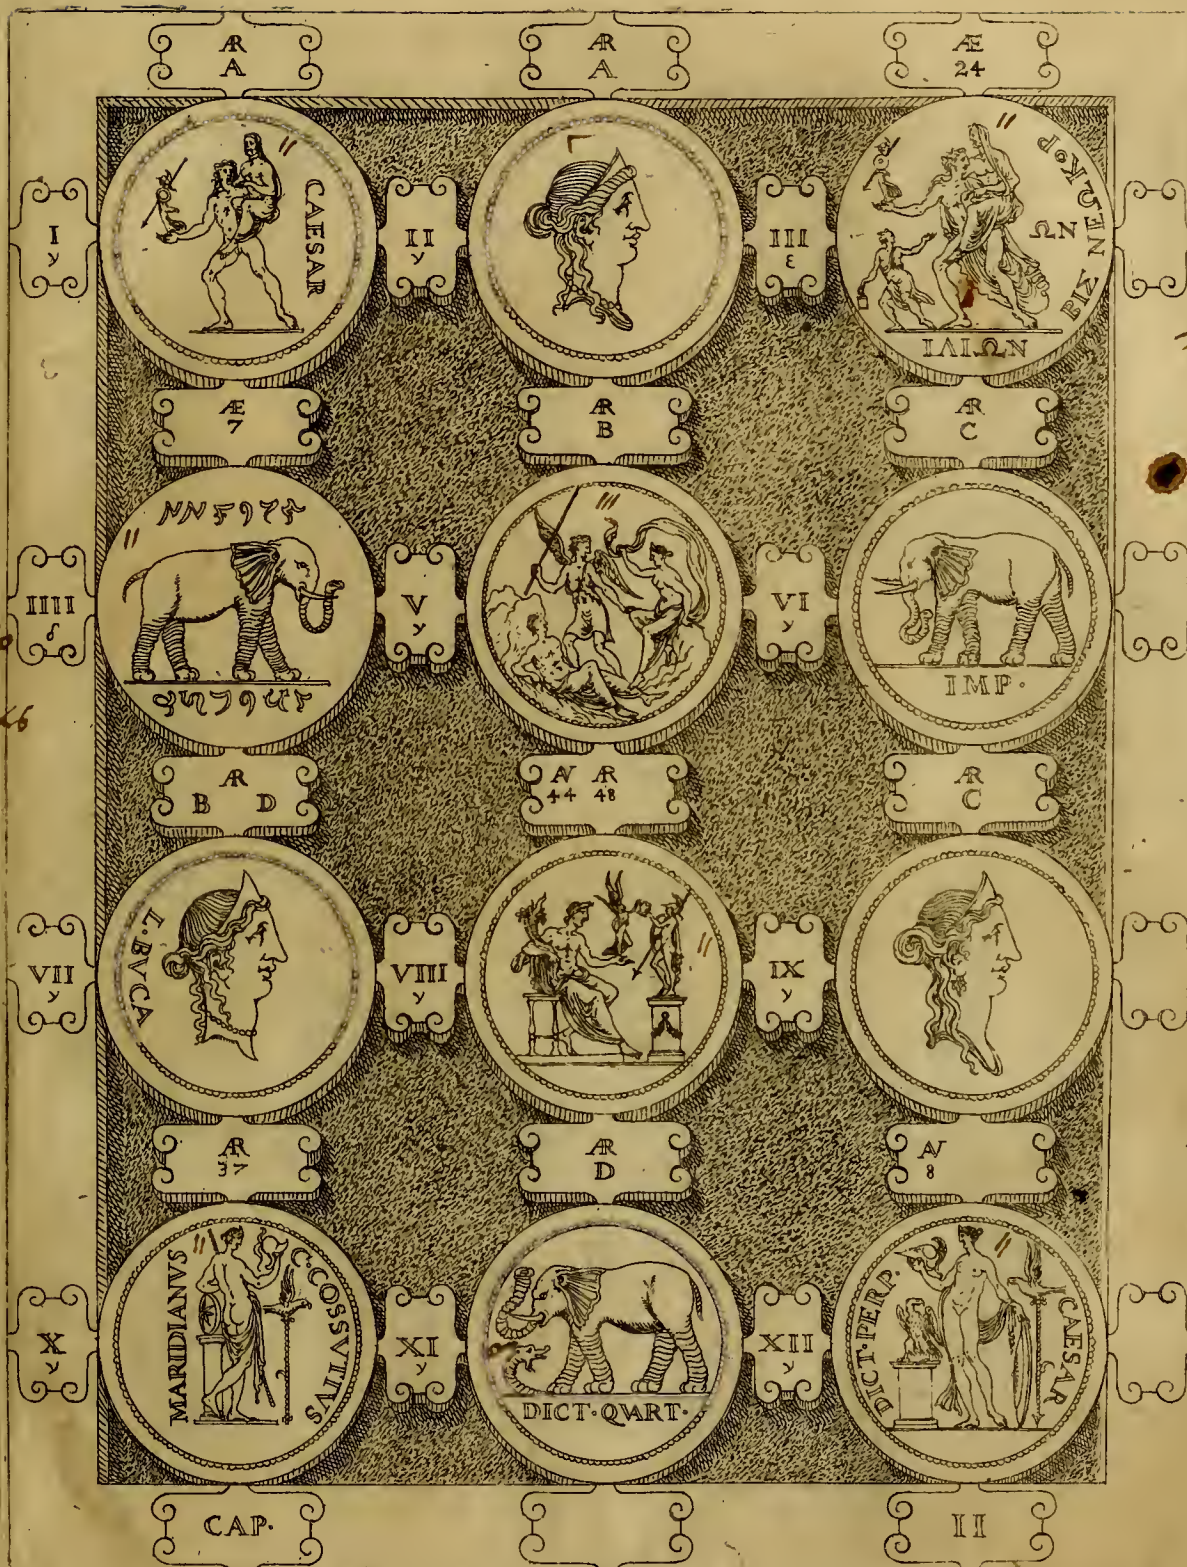 ÆR
A
ÆR
A
Æ
24
I
γ
CAESAR
II
γ
III
ε
ΩΝ
ΙΛΙΩΝ
Æ
7
ÆR
B
ÆR
C
IIII
V
γ
VI
γ
IMP·
ÆR
B D
A/ ÆR
44 48
ÆR
C
VII
γ
L·BVCA
VIII
γ
IX
γ
ÆR
37
ÆR
D
A/
8
X
γ
MARIDIANVS
C·COSSVTIVS
XI
γ
DICT·QVART·
XII
γ
DICT·PERP·
CAESAR
CAP·
II